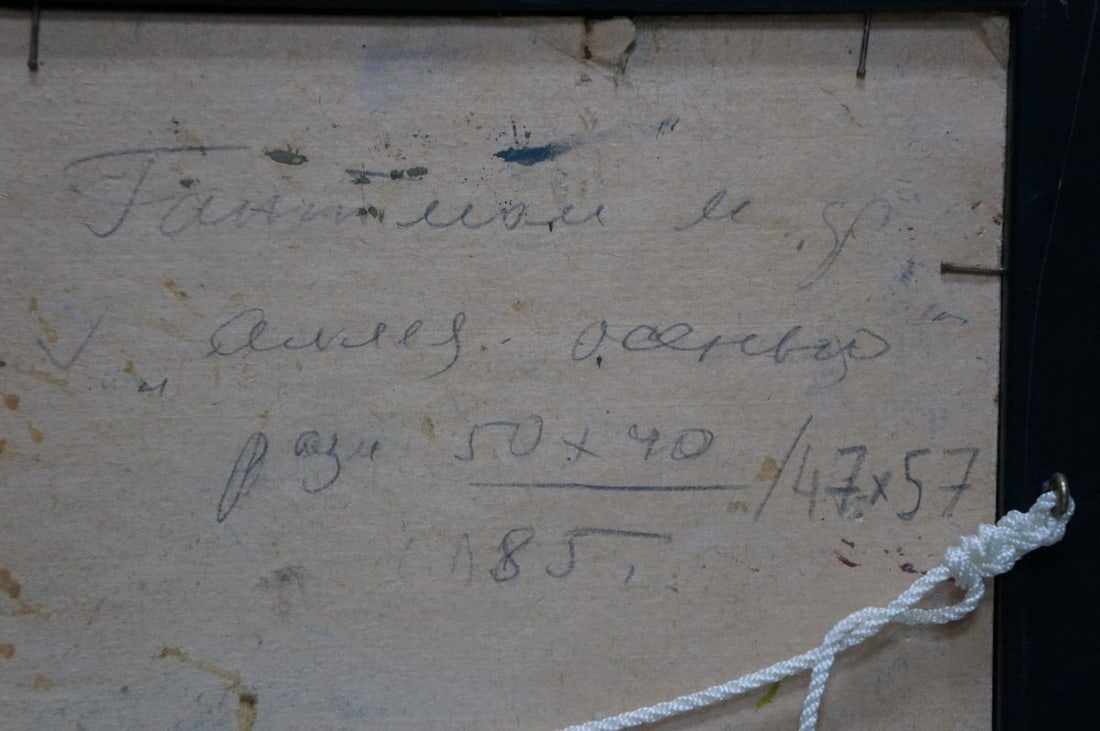 Гантман И
„Аллея осенью“
разм 50 x 40 / 47x57
85